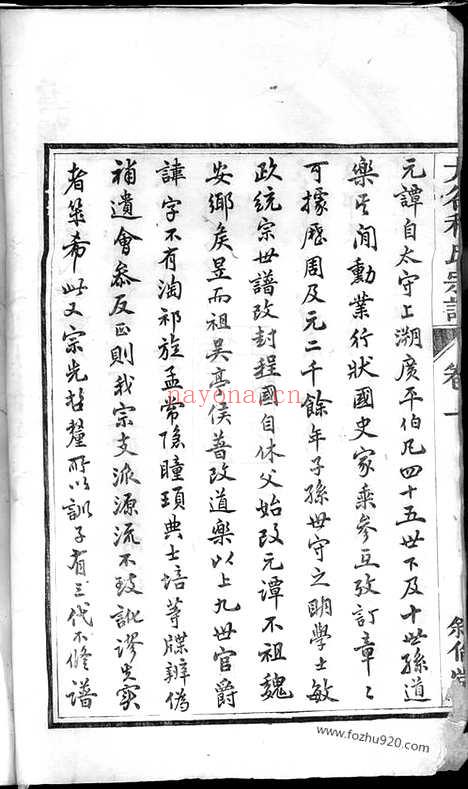 元譚自太守上溯廣平伯凡四十五世下及十世孫道
樂其間勳業行狀國史家乘參互攷訂章〻
可據歷周及元二千餘年子孫世守之明學士敏
政統宗世譜改封程國自休父始改元譚不祖魏
安鄉矦昱而祖吳亭侯普改道樂以上九世官爵
諱字不有淘祁旋孟常隱瞳頊典士培等牒辨偽
補遺會叅反正則我宗支派源流不致訛謬失實
者榘希此又宗先哲釐所以訓子有三代不修譜
程氏宗譜
卷一
payona.cn
www.fozhu920.com